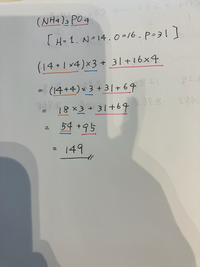 (NH4)3PO4
[H=1. N=14. O=16. P=31]
(14+1×4)×3+31+16×4
=(14+4)×3+31+64
= 18×3+31+64
= 54+95
= 149